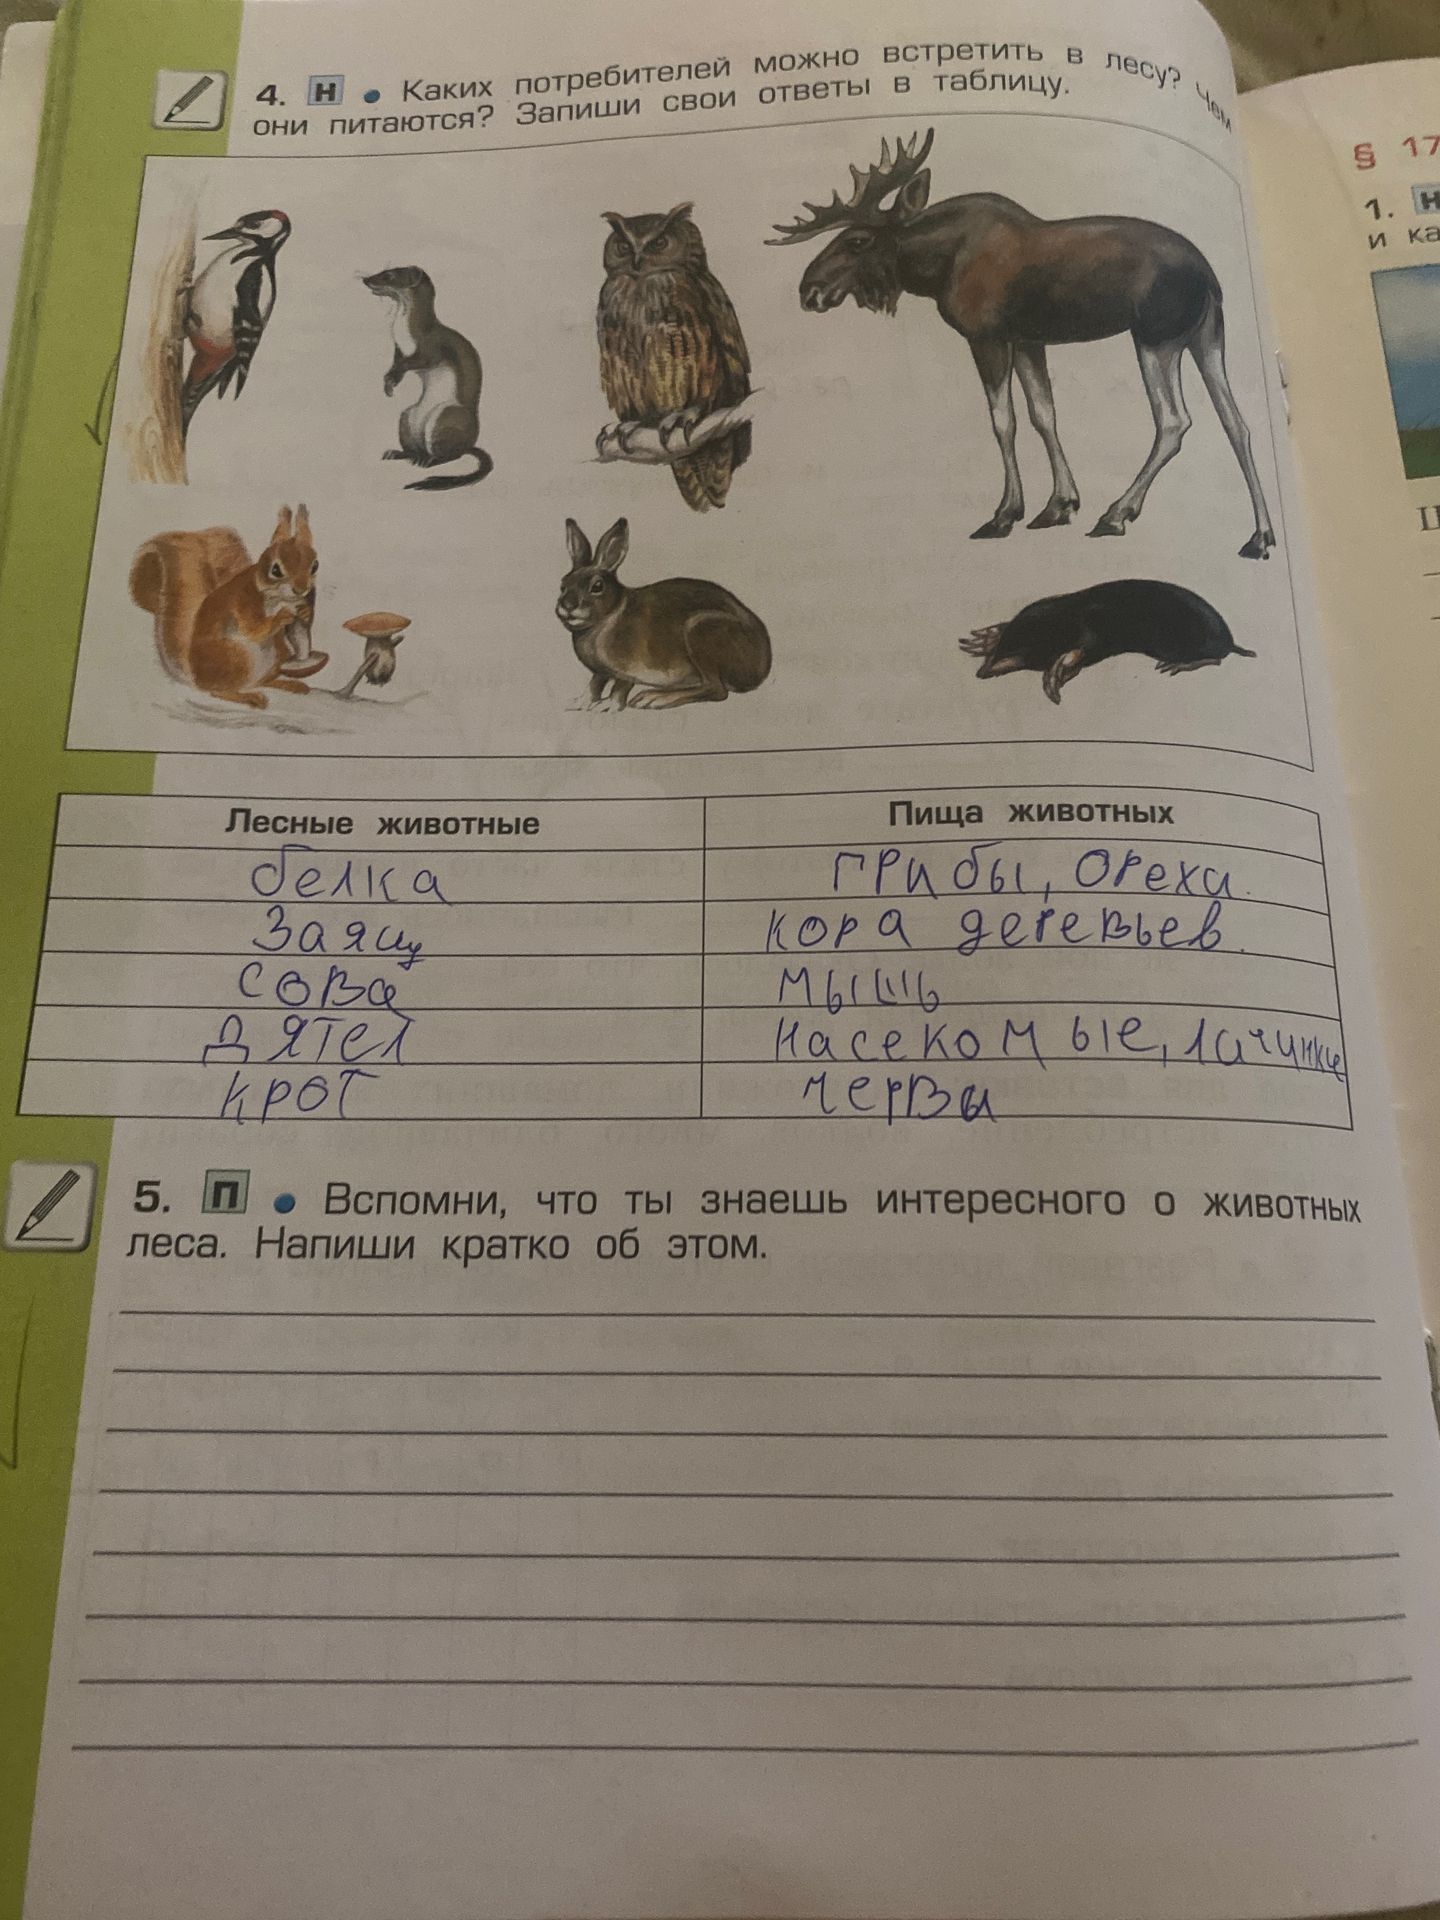 4. Н • Каких потребителей можно встретить в лесу? Чем
они питаются? Запиши свои ответы в таблицу.
Лесные животные Пища животных
белка грибы, орехи.
Заяц кора деревьев.
сова мышь
дятел насекомые, личинки
крот червы
5. П • Вспомни, что ты знаешь интересного о животных
леса. Напиши кратко об этом.
§ 17
1. Н
и ка